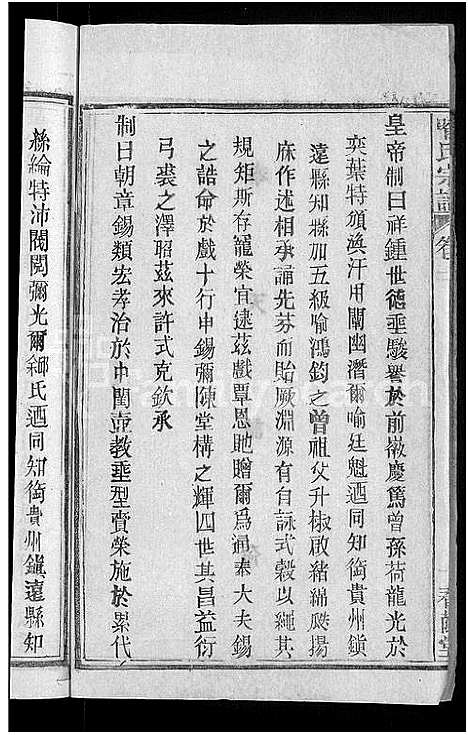 喻氏宗譜 卷二
皇帝制曰祥鍾世德垂駿譽於前徽慶篤曾孫荷龍光於
奕葉特頒渙汗用闡幽潛爾喻廷魁迺同知銜貴州鎮
遠縣知縣加五級喻鴻鈞之曾祖父升椒啟緒綿瓞揚
庥作述相承誦先芬而貽厥淵源有自詠式穀以繩其
規矩斯存寵榮宜逮茲戲覃恩貤贈爾爲通奉大夫錫
之誥命於戲十行申錫彌陳堂構之輝四世其昌益衍
弓裘之澤昭茲來許式克欽承
制曰朝章錫類宏孝治於中閨壼教垂型賁榮施於累代
絲綸特沛閥閱彌光爾鄒氏迺同知銜貴州鎮遠縣知